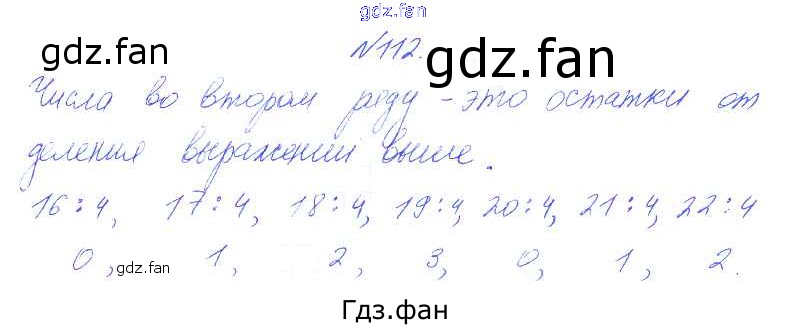 gdz.fan
gdz.fan
№112.
gdz.fan
Числа во втором ряду - это остатки от
деления выражений выше.
16:4, 17:4, 18:4, 19:4, 20:4, 21:4, 22:4
0, 1, 2, 3, 0, 1, 2.
gdz.fan
Гдз.фан